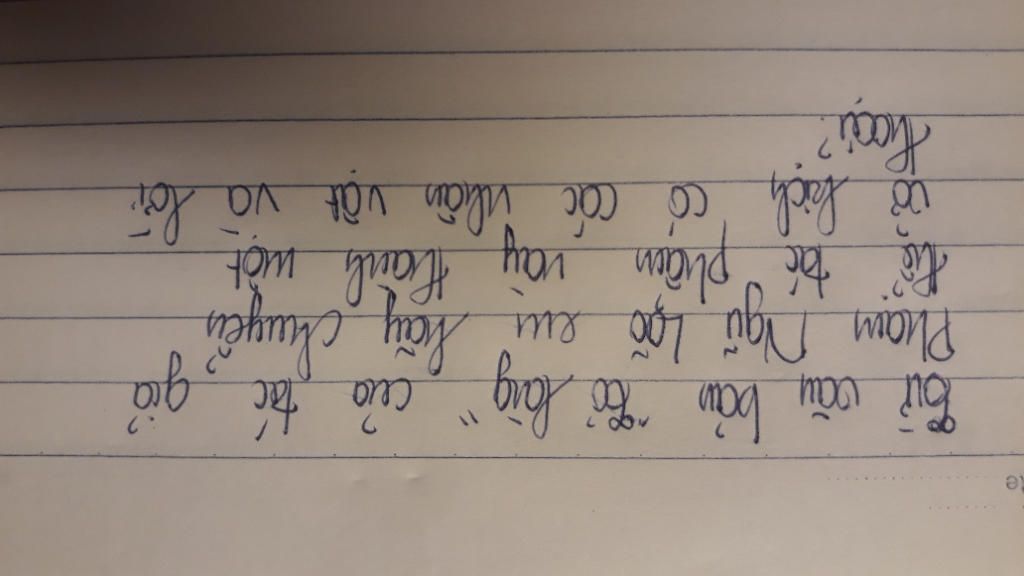 Từ văn bản "Tỏ lòng" của tác giả
Phạm Ngũ Lão em hãy chuyển
thể tác phẩm này thành một
vở kịch có các nhân vật và lời
thoại?